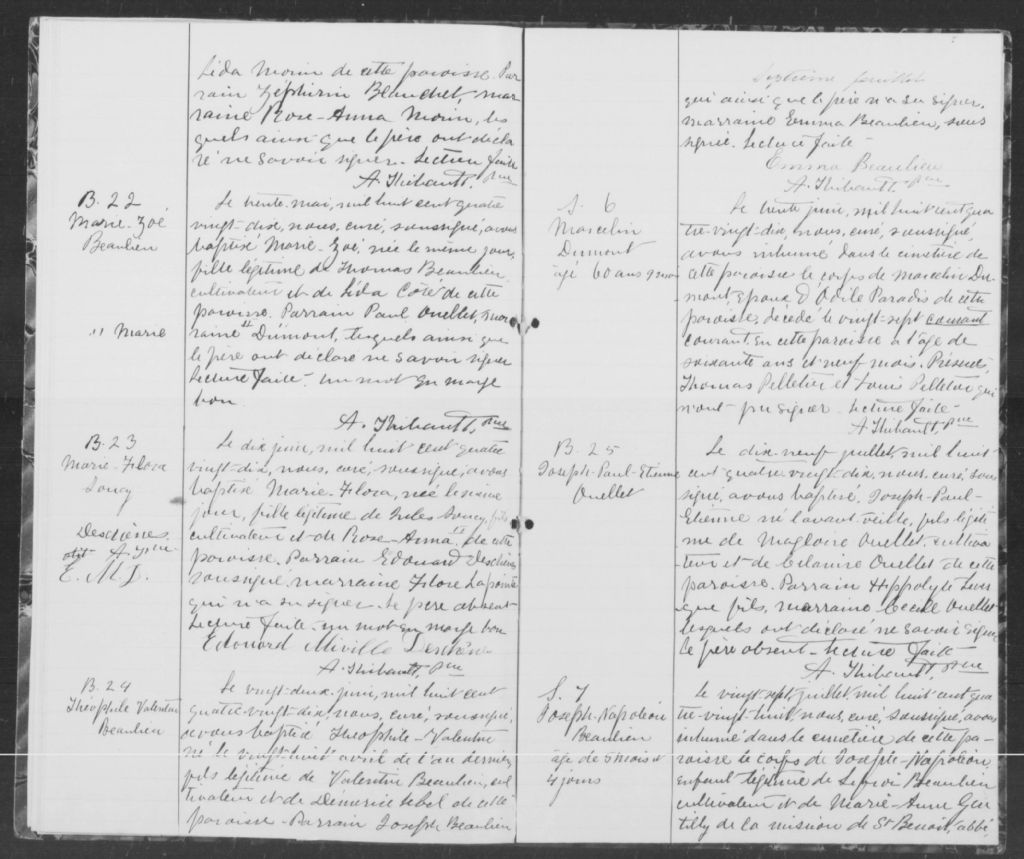 Lida Morin de cette paroisse. Par
rain Zéphirin Blanchet, mar
raine Rose-Anna Morin, les
quels ainsi que le père ont décla
ré ne savoir signer. Lecture faite
A. Thibault, ptre
B. 22
Marie-Zoé
Beaulieu
Le trente mai, mil huit cent quatre
vingt-dix, nous, curé, soussigné, avons
baptisé Marie-Zoé, née le même jour,
fille légitime de Thomas Beaulieu
cultivateur et de Lida Côté de cette
paroisse. Parrain Paul Ouellet, mar
" Marie
raine " Dumont, lesquels ainsi que
le père ont déclaré ne savoir signer
Lecture faite. Un mot en marge
bon.
A. Thibault, ptre
B. 23
Marie-Flora
Soucy
Le dix juin, mil huit cent quatre
vingt-dix, nous, curé, soussigné, avons
baptisé Marie-Flora, née le même
jour, fille légitime de Jules Soucy, fils
Deschènes
E. M. D.
cultivateur et de Rose-Anna " de cette
paroisse. Parrain Edouard Deschènes
soussigné, marraine Flore Lapointe
qui n'a su signer. Le père absent
Lecture faite. un mot en marge bon
Edouard Miville Deschène
A. Thibault, ptre
B. 24
Théophile Valentin
Beaulieu
Le vingt-deux juin, mil huit cent
quatre-vingt-dix, nous, curé, soussigné,
avons baptisé Théophile-Valentin
né le vingt-huit avril de l'an dernier,
fils légitime de Valentin Beaulieu, cul
tivateur et de Démerise Lebel de cette
paroisse. Parrain Joseph Beaulieu
Septième feuillet
qui ainsi que le père n'a su signer.
marraine Emma Beaulieu, sous
signée. Lecture faite
Emma Beaulieu
A. Thibault, ptre
S. 6
Marcelin
Dumont
âgé 60 ans 9 mois
Le trente juin, mil huit cent qua
tre-vingt-dix, nous, curé, soussigné,
avons inhumé dans le cimetière de
cette paroisse le corps de Marcelin Du-
mont, époux d'Odile Paradis de cette
paroisse, décédé le vingt-sept courant
courant en cette paroisse à l'âge de
soixante ans et neuf mois. Présents,
Thomas Pelletier et Louis Pelletier qui
n'ont pu signer. Lecture faite-
A Thibault, ptre
B. 25
Joseph-Paul-Etienne
Ouellet
Le dix-neuf juillet, mil huit
cent quatre-vingt-dix, nous, curé, sous
signé, avons baptisé, Joseph-Paul-
Etienne né l'avant veille, fils légiti
me de Magloire Ouellet, cultiva
teur et de Célanire Ouellet de cette
paroisse. Parrain Hippolyte Leves
que fils, marraine Cécile Ouellet
lesquels ont déclaré ne savoir signer
Le père absent-Lecture faite
A. Thibault, ptre
S. 7
Joseph-Napoléon
Beaulieu
âgé de 5 mois et
4 jours
Le vingt-sept juillet, mil huit cent qua
tre-vingt-huit, nous, curé, soussigné, avons
inhumé dans le cimetière de cette pa-
roisse le corps de Joseph-Napoléon,
enfant légitime de Beaulieu
cultivateur et de Marie-Anne Gen
tilly de la mission de St Benoit, abbé,